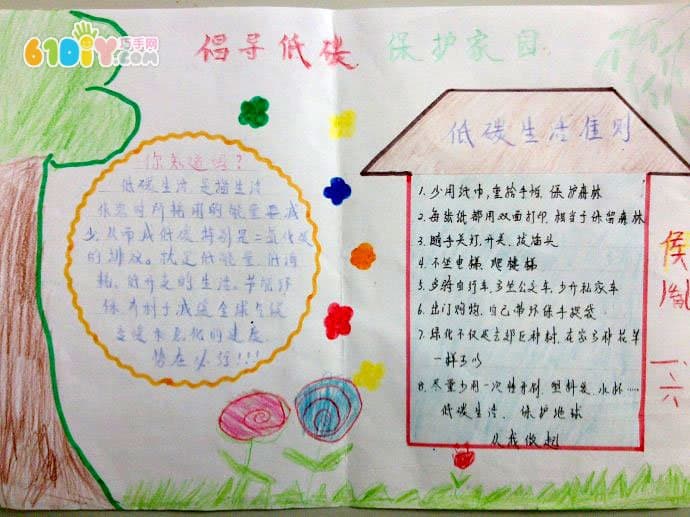 61DIY巧手网
.COM
倡导低碳 保护家园
你知道吗?
低碳生活,是指生活
作息时所耗用的能量要减
少,从而减低碳,特别是二氧化碳
的排放。就是低能量、低消
耗、低开支的生活。节能环
保,有利于减缓全球气候
变暖和恶化的速度,
势在必行!!!
低碳生活准则
1. 少用纸巾,重拾手帕,保护森林
2. 每张纸都用双面打印,相当于保留森林
3. 随手关灯、开关、拔插头
4. 不坐电梯、爬楼梯
5. 多骑自行车,多坐公交车,少开私家车
6. 出门购物,自己带环保手提袋
7. 绿化不仅是去郊区种树,在家多种花草
一样可以
8. 尽量少用一次性牙刷、塑料袋、水杯……
低碳生活、保护地球
从我做起
一.六